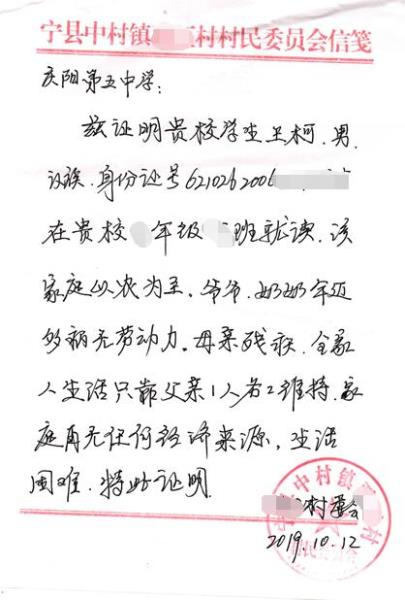 宁县中村镇 村村民委员会信笺
庆阳第五中学:
兹证明贵校学生王柯,男,
汉族,身份证号6210262006
在贵校 年级 班就读,该
家庭以农为主,爷爷、奶奶年迈
多病无劳动力,母亲残疾,全家
人生活只靠父亲1人务工维持,家
庭再无任何经济来源,生活
困难,特此证明
村委会
2019.10.12
中村镇 村
村民委员会